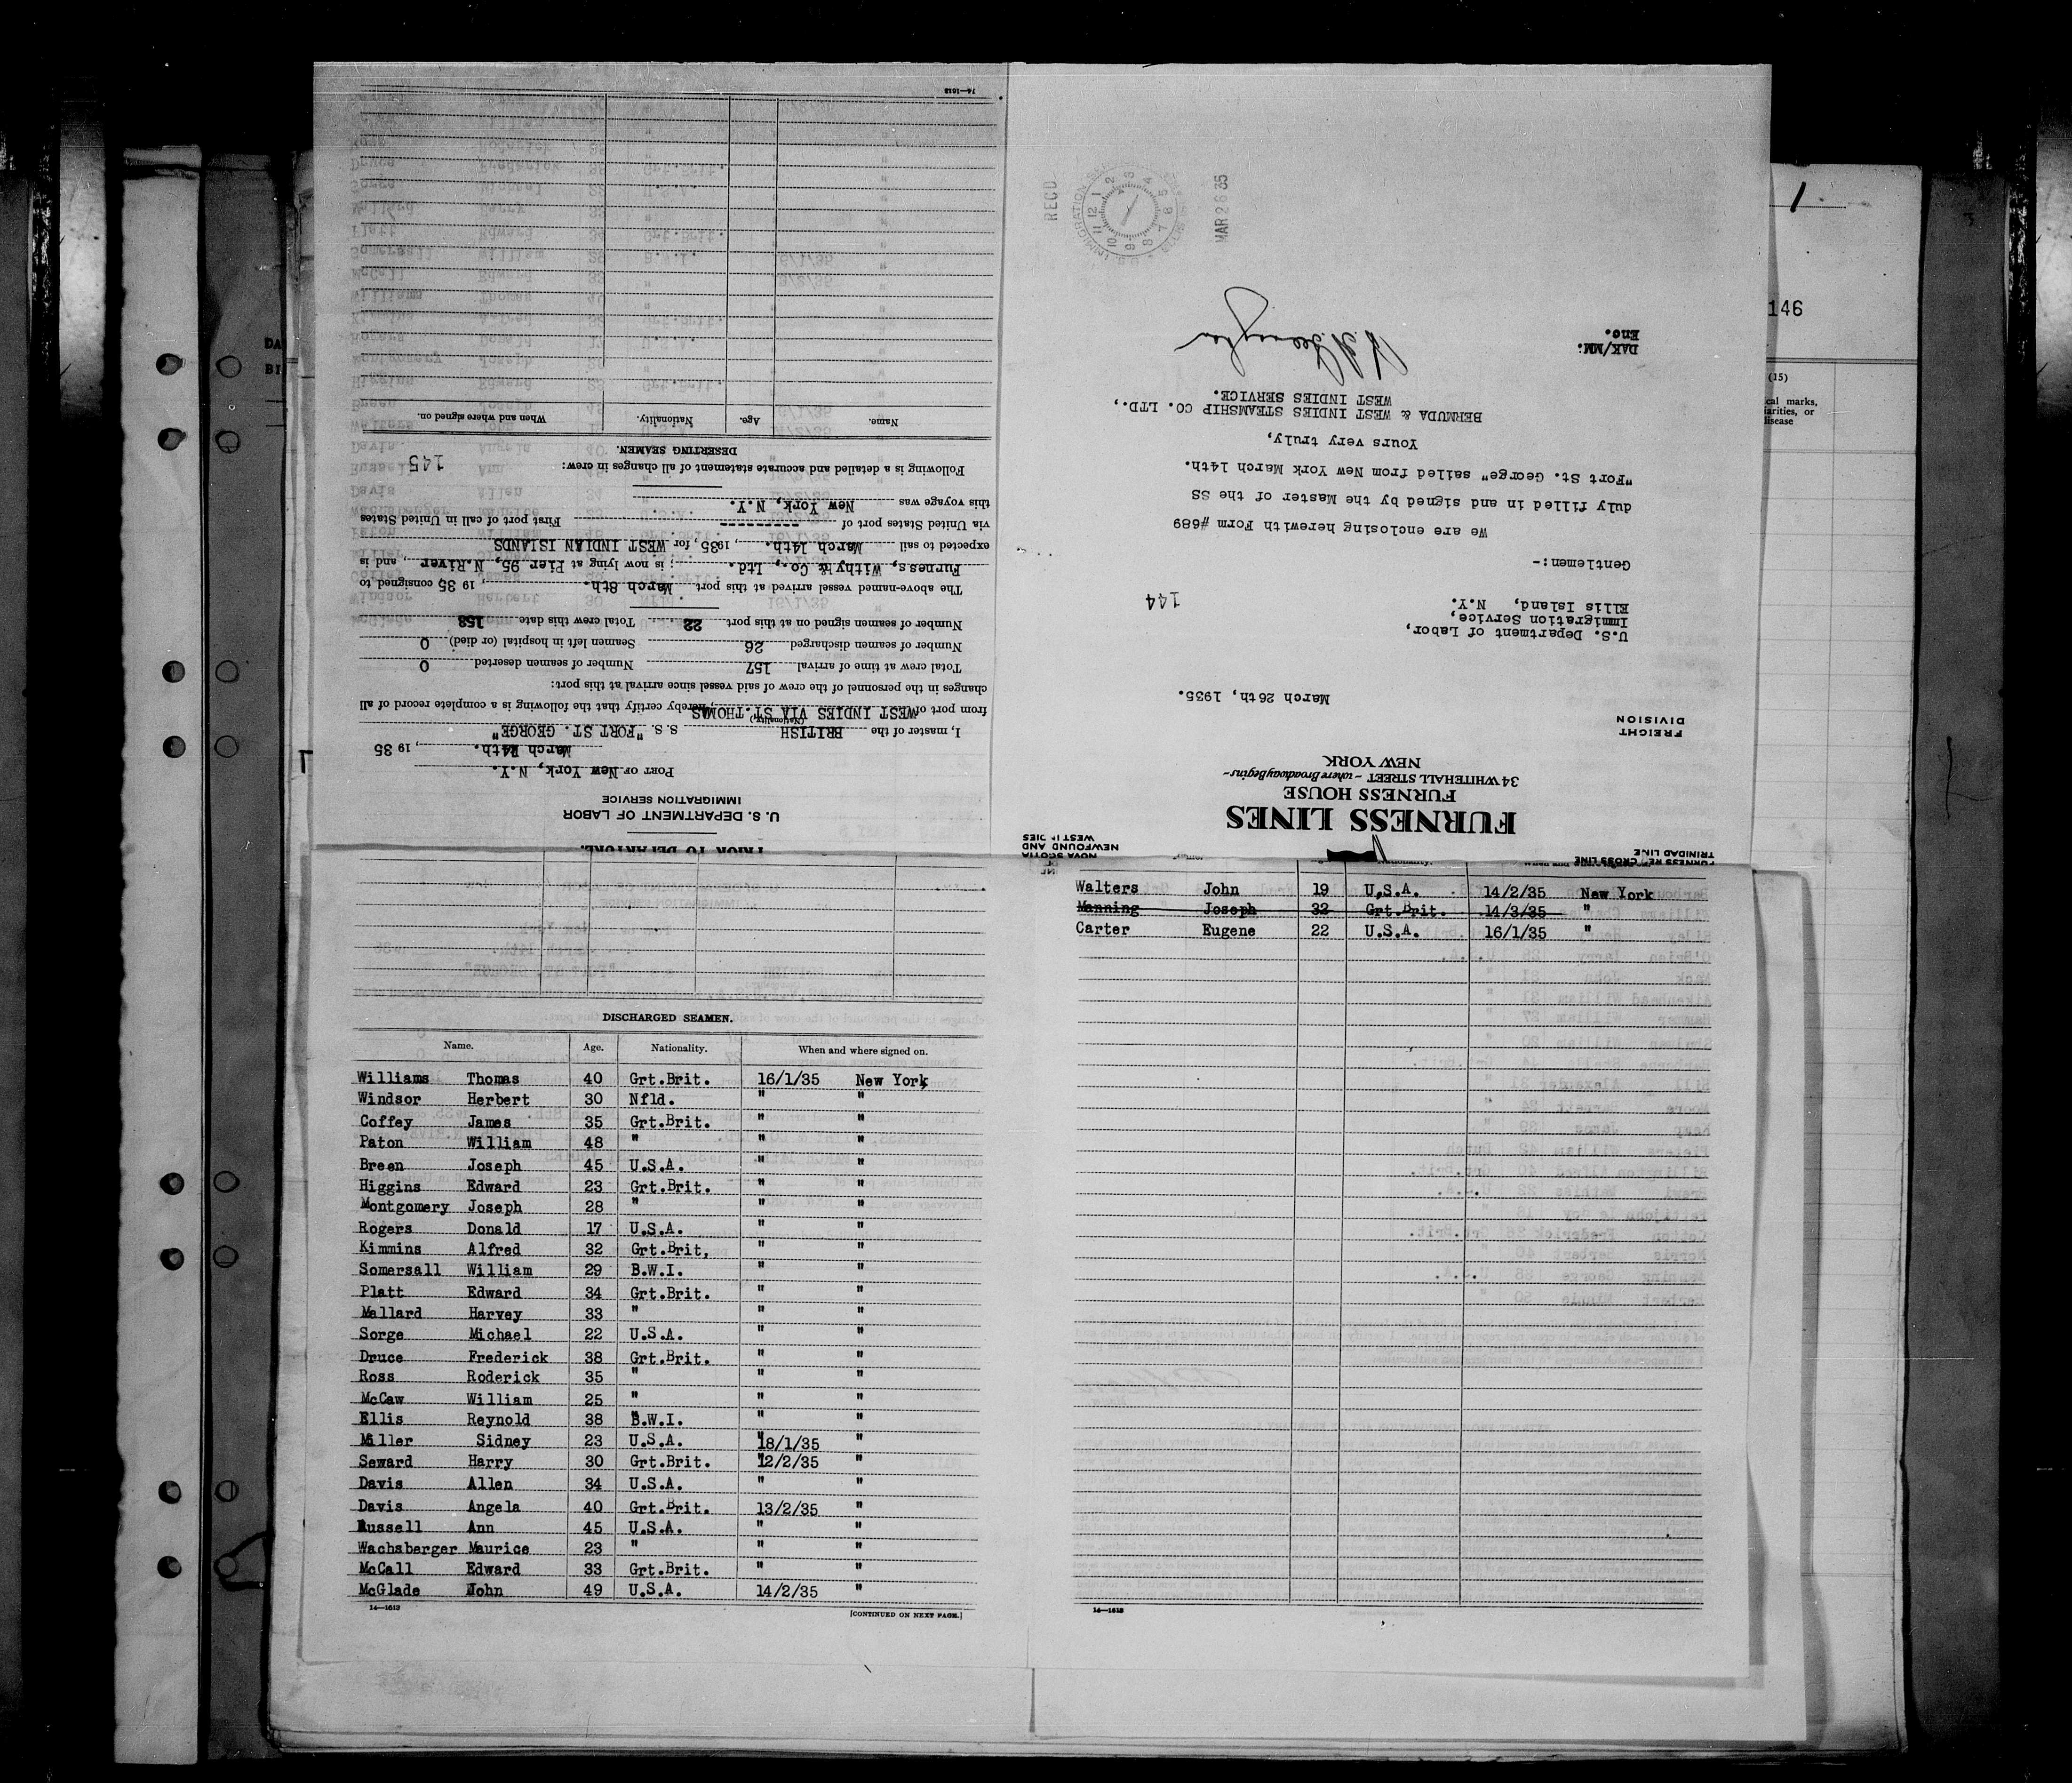 FURNESS RED CROSS LINE
TRINIDAD LINE
NOVA SCOTIA
NEWFOUNDLAND AND
WEST INDIES
FURNESS LINES
FURNESS HOUSE
34 WHITEHALL STREET - where Broadway Begins -
NEW YORK
FREIGHT
DIVISION
March 26th, 1935.
U.S. Department of Labor,
Immigration Service,
Ellis Island, N.Y.
144
Gentlemen:-
We are enclosing herewith Form #689
duly filled in and signed by the Master of the SS
"Fort St. George" sailed from New York March 14th.
Yours very truly,
BERMUDA & WEST INDIES STEAMSHIP CO. LTD.,
WEST INDIES SERVICE.
DAK/MM.
Enc.
REC'D
MAR 26 35
PRIOR TO DEPARTURE.
U. S. DEPARTMENT OF LABOR
IMMIGRATION SERVICE
PORT OF New York, N.Y.
March 14th., 1935
I, master of the BRITISH S. S. "FORT ST. GEORGE"
(Nationality)
from port of WEST INDIES VIA ST. THOMAS, hereby certify that the following is a complete record of all
changes in the personnel of the crew of said vessel since arrival at this port:
Total crew at time of arrival 157 Number of seamen deserted 0
Number of seamen discharged 26 Seamen left in hospital (or died) 0
Number of seamen signed on at this port 22 Total crew this date 158
The above-named vessel arrived at this port March 8th., 1935 consigned to
Furness, Withy & Co., Ltd. ; is now lying at Pier 95, N.River, and is
expected to sail March 14th., 1935, for WEST INDIAN ISLANDS
via United States port of --------- First port of call in United States
this voyage was New York, N.Y.
Following is a detailed and accurate statement of all changes in crew: 145
DESERTING SEAMEN.
Name. Age. Nationality. When and where signed on.
14—1613
DISCHARGED SEAMEN.
Name. Age. Nationality. When and where signed on.
Williams Thomas 40 Grt.Brit. 16/1/35 New York
Windsor Herbert 30 Nfld. " "
Coffey James 35 Grt.Brit. " "
Paton William 48 " " "
Breen Joseph 45 U.S.A. " "
Higgins Edward 23 Grt.Brit. " "
Montgomery Joseph 28 " " "
Rogers Donald 17 U.S.A. " "
Kimmins Alfred 32 Grt.Brit, " "
Somersall William 29 B.W.I. " "
Platt Edward 34 Grt.Brit. " "
Mallard Harvey 33 " " "
Sorge Michael 22 U.S.A. " "
Druce Frederick 38 Grt.Brit. " "
Ross Roderick 35 " " "
McCaw William 25 " " "
Ellis Reynold 38 B.W.I. " "
Miller Sidney 23 U.S.A. 18/1/35 "
Seward Harry 30 Grt.Brit. 12/2/35 "
Davis Allen 34 U.S.A. " "
Davis Angela 40 Grt.Brit. 13/2/35 "
Russell Ann 45 U.S.A. " "
Wachsberger Maurice 23 " " "
McCall Edward 33 Grt.Brit. " "
McGlade John 49 U.S.A. 14/2/35 "
14—1613
[CONTINUED ON NEXT PAGE.]
Walters John 19 U.S.A. 14/2/35 New York
Manning Joseph 32 Grt.Brit. 14/3/35 "
Carter Eugene 22 U.S.A. 16/1/35 "
14—1613
146
(15)